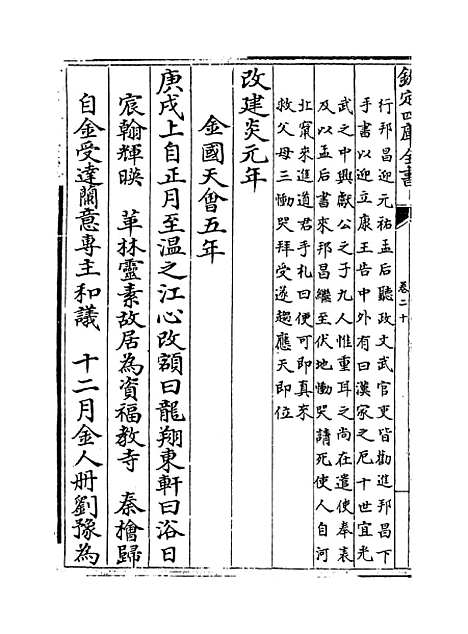 欽定四庫全書
卷二十
行邦昌迎元祐孟后聽政文武官吏皆勸進邦昌下
手書以迎立康王告中外有曰漢家之厄十世宜光
武之中興獻公之子九人惟重耳之尚在遣使奉表
及以孟后書來邦昌繼至伏地慟哭請死使人自河
北竄來進道君手札曰便可即真來
救父母三慟哭拜受遂趨應天即位
改建炎元年
金國天㑹五年
庚戌上自正月至温之江心改額曰龍翔東軒曰浴日
宸翰輝暎　革林靈素故居為資福教寺　秦檜歸
自金受達蘭意專主和議　十二月金人册劉豫為